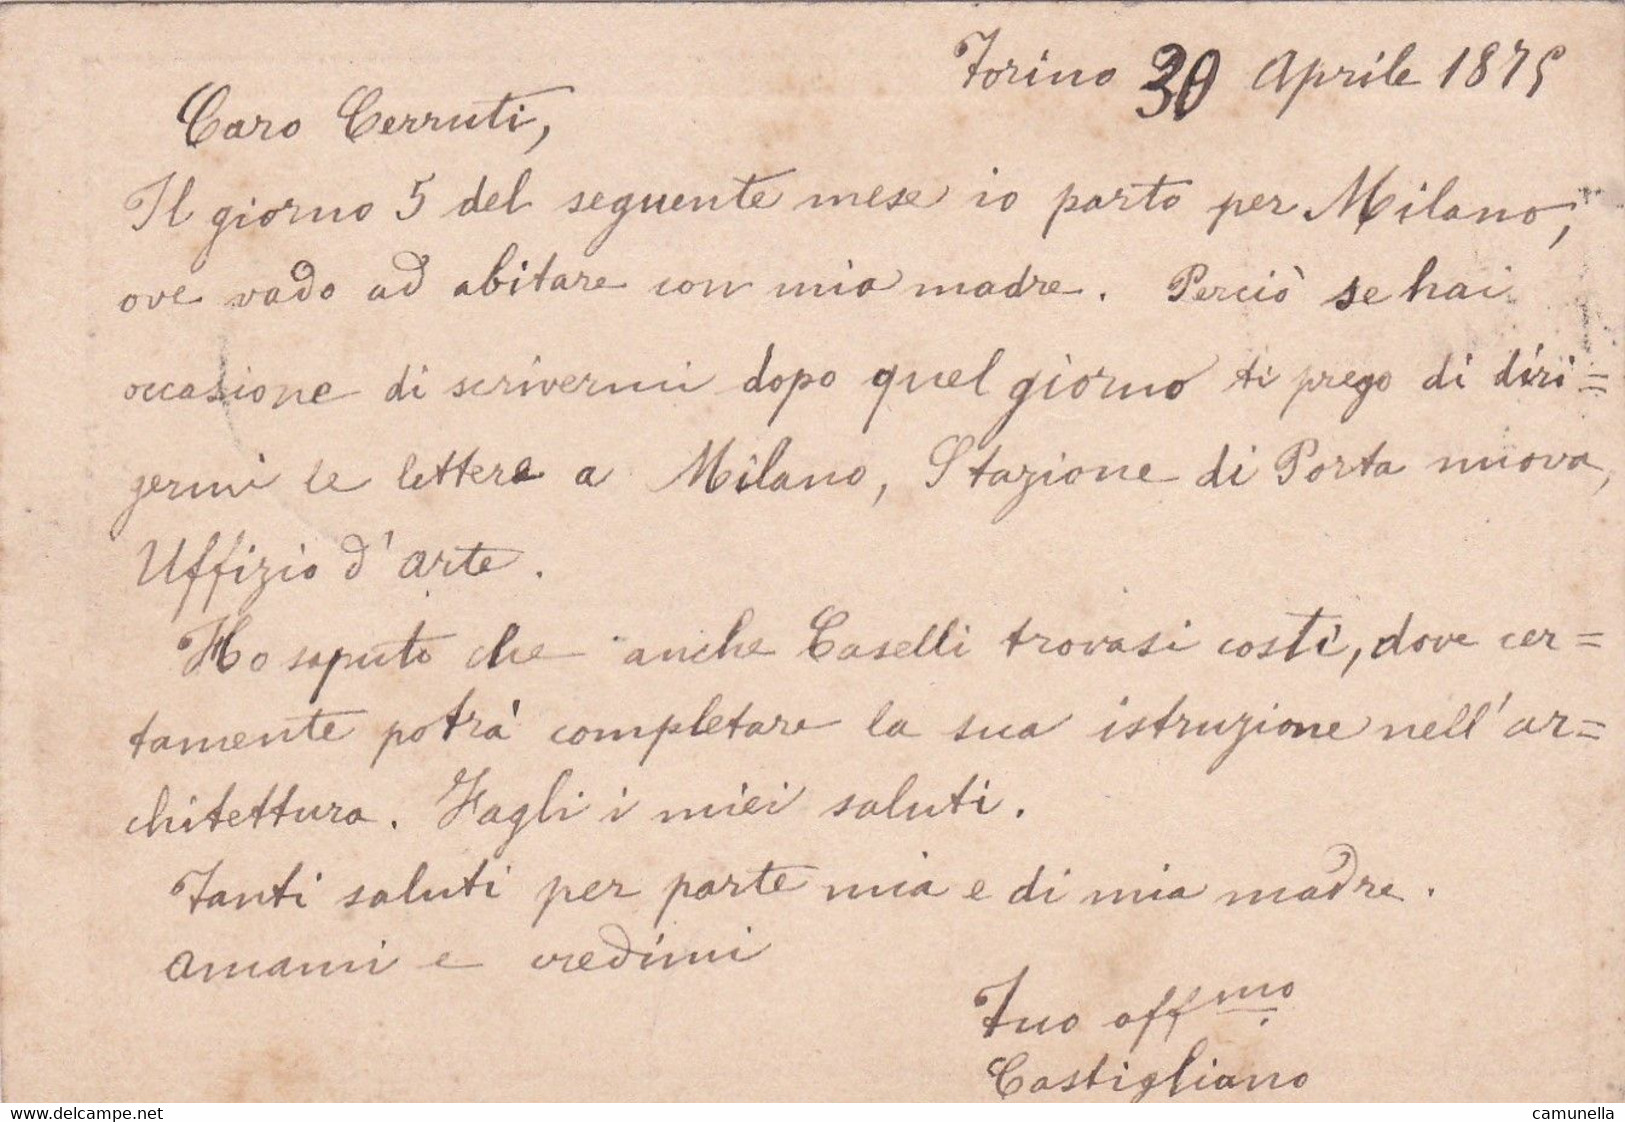 Torino 30 Aprile 1875
Caro Cerruti,
Il giorno 5 del seguente mese io parto per Milano,
ove vado ad abitare con mia madre. Perciò se hai
occasione di scrivermi dopo quel giorno ti prego di diri=
germi le lettere a Milano, Stazione di Porta nuova,
Uffizio d'arte.
Ho saputo che anche Caselli trovasi costì, dove cer=
tamente potrà completare la sua istruzione nell'ar=
chitettura. Fagli i miei saluti.
Tanti saluti per parte mia e di mia madre.
Amami e credimi
Tuo aff.mo
Castigliano
www.delcampe.net
camunella